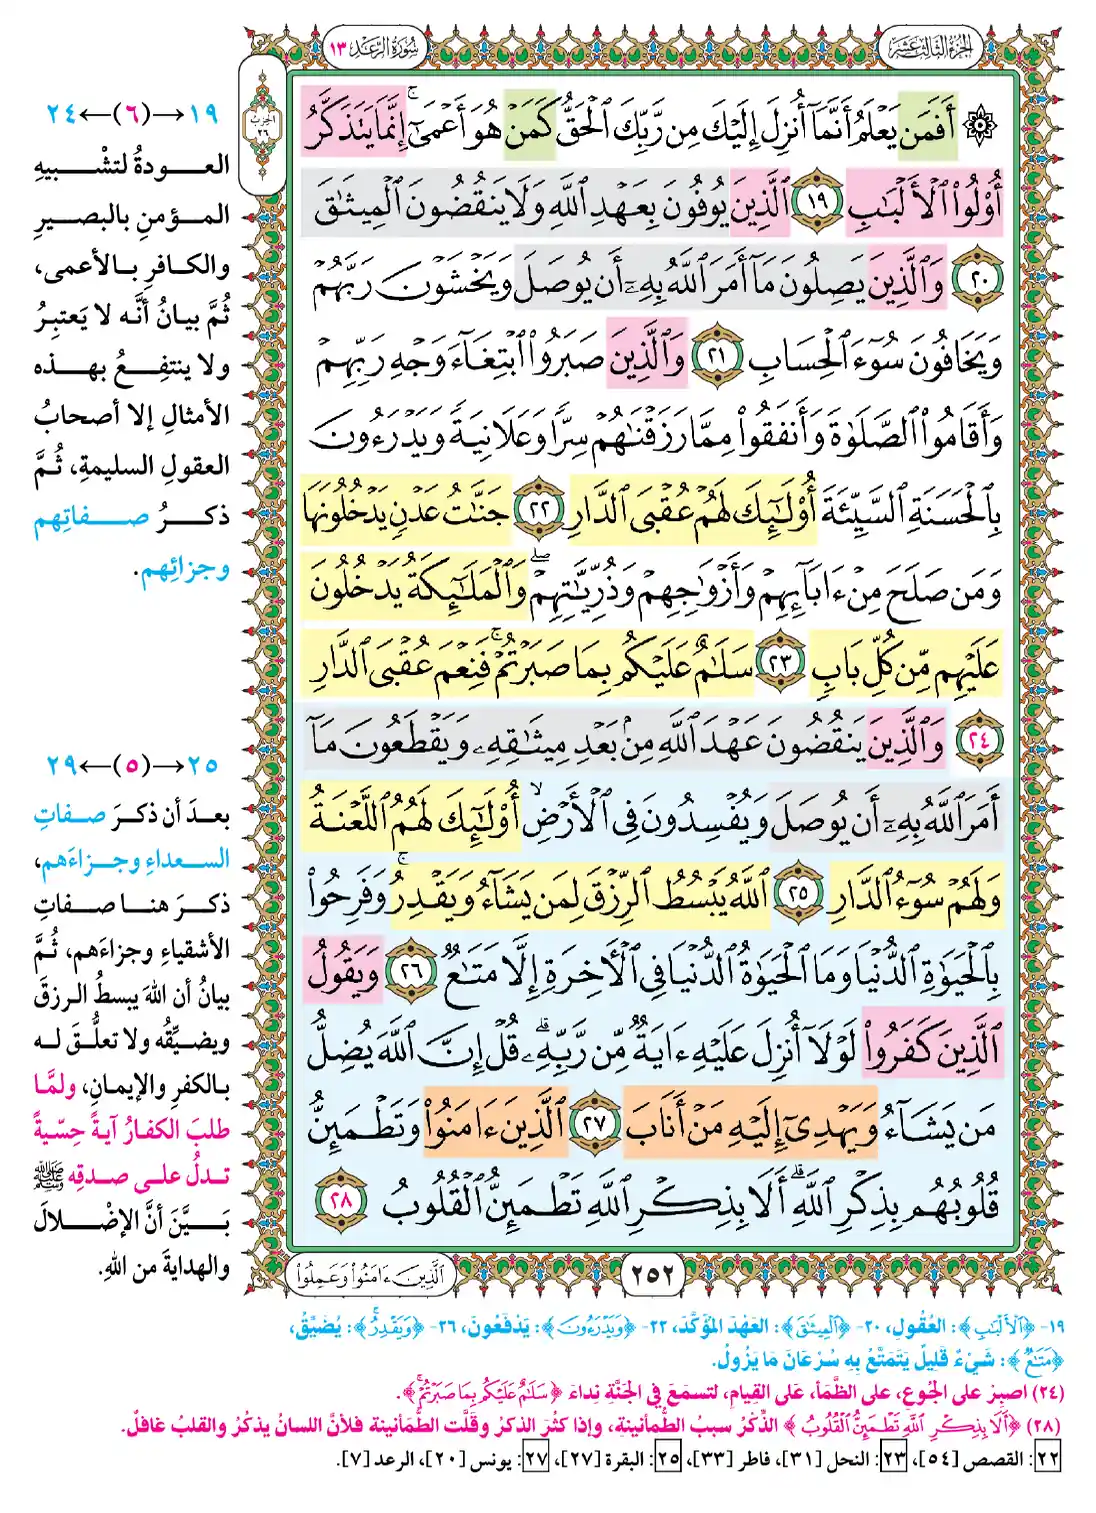 الجزء الثالث عشر
سورة الرعد ١٣
الحزب ٢٦
۞ أَفَمَن يَعْلَمُ أَنَّمَآ أُنزِلَ إِلَيْكَ مِن رَّبِّكَ ٱلْحَقُّ كَمَنْ هُوَ أَعْمَىٰٓ ۚ إِنَّمَا يَتَذَكَّرُ
أُو۟لُوا۟ ٱلْأَلْبَٰبِ ١٩ ٱلَّذِينَ يُوفُونَ بِعَهْدِ ٱللَّهِ وَلَا يَنقُضُونَ ٱلْمِيثَٰقَ
٢٠ وَٱلَّذِينَ يَصِلُونَ مَآ أَمَرَ ٱللَّهُ بِهِۦٓ أَن يُوصَلَ وَيَخْشَوْنَ رَبَّهُمْ
وَيَخَافُونَ سُوٓءَ ٱلْحِسَابِ ٢١ وَٱلَّذِينَ صَبَرُوا۟ ٱبْتِغَآءَ وَجْهِ رَبِّهِمْ
وَأَقَامُوا۟ ٱلصَّلَوٰةَ وَأَنفَقُوا۟ مِمَّا رَزَقْنَٰهُمْ سِرًّا وَعَلَانِيَةً وَيَدْرَءُونَ
بِٱلْحَسَنَةِ ٱلسَّيِّئَةَ أُو۟لَٰٓئِكَ لَهُمْ عُقْبَى ٱلدَّارِ ٢٢ جَنَّٰتُ عَدْنٍ يَدْخُلُونَهَا
وَمَن صَلَحَ مِنْ ءَابَآئِهِمْ وَأَزْوَٰجِهِمْ وَذُرِّيَّٰتِهِمْ ۖ وَٱلْمَلَٰٓئِكَةُ يَدْخُلُونَ
عَلَيْهِم مِّن كُلِّ بَابٍ ٢٣ سَلَٰمٌ عَلَيْكُم بِمَا صَبَرْتُمْ ۚ فَنِعْمَ عُقْبَى ٱلدَّارِ
٢٤ وَٱلَّذِينَ يَنقُضُونَ عَهْدَ ٱللَّهِ مِنۢ بَعْدِ مِيثَٰقِهِۦ وَيَقْطَعُونَ مَآ
أَمَرَ ٱللَّهُ بِهِۦٓ أَن يُوصَلَ وَيُفْسِدُونَ فِى ٱلْأَرْضِ ۙ أُو۟لَٰٓئِكَ لَهُمُ ٱللَّعْنَةُ
وَلَهُمْ سُوٓءُ ٱلدَّارِ ٢٥ ٱللَّهُ يَبْسُطُ ٱلرِّزْقَ لِمَن يَشَآءُ وَيَقْدِرُ ۚ وَفَرِحُوا۟
بِٱلْحَيَوٰةِ ٱلدُّنْيَا وَمَا ٱلْحَيَوٰةُ ٱلدُّنْيَا فِى ٱلْءَاخِرَةِ إِلَّا مَتَٰعٌ ٢٦ وَيَقُولُ
ٱلَّذِينَ كَفَرُوا۟ لَوْلَآ أُنزِلَ عَلَيْهِ ءَايَةٌ مِّن رَّبِّهِۦ ۗ قُلْ إِنَّ ٱللَّهَ يُضِلُّ
مَن يَشَآءُ وَيَهْدِىٓ إِلَيْهِ مَنْ أَنَابَ ٢٧ ٱلَّذِينَ ءَامَنُوا۟ وَتَطْمَئِنُّ
قُلُوبُهُم بِذِكْرِ ٱللَّهِ ۗ أَلَا بِذِكْرِ ٱللَّهِ تَطْمَئِنُّ ٱلْقُلُوبُ ٢٨
٢٥٢
ٱلَّذِينَ ءَامَنُوا۟ وَعَمِلُوا۟
١٩→(٦)←٢٤
العودةُ لتشْبيهِ
المؤمنِ بالبصيرِ
والكافرِ بالأعمى،
ثُمَّ بيانُ أنَّه لا يَعتبِرُ
ولا ينتفِعُ بهذه
الأمثالِ إلا أصحابُ
العقولِ السليمةِ، ثُمَّ
ذكرُ صفاتِهم
وجزائِهم.
٢٥→(٥)←٢٩
بعدَ أن ذكرَ صفاتِ
السعداءِ وجزاءَهم،
ذكرَ هنا صفاتِ
الأشقياءِ وجزاءَهم، ثُمَّ
بيانُ أن اللهَ يبسطُ الرزقَ
ويضيِّقُه ولا تعلُّقَ له
بالكفرِ والإيمانِ، ولمَّا
طلبَ الكفارُ آيةً حِسّيةً
تدلُّ على صدقِه ﷺ
بَيَّنَ أنَّ الإضْلالَ
والهدايةَ من اللهِ.
١٩- ﴿ٱلْأَلْبَٰبِ﴾: العُقُولِ، ٢٠- ﴿ٱلْمِيثَٰقَ﴾: العَهْدَ المُؤَكَّدَ، ٢٢- ﴿وَيَدْرَءُونَ﴾: يَدْفَعُونَ، ٢٦- ﴿وَيَقْدِرُ ۚ﴾: يُضَيِّقُ،
﴿مَتَٰعٌ﴾: شَيْءٌ قَلِيلٌ يُتَمَتَّعُ بِهِ سُرْعَانَ مَا يَزُولُ.
(٢٤) اصبِرْ على الجُوعِ، على الظَّمأ، عَلَى القِيامِ، لتسمَعَ فِي الجَنَّةِ نِداءَ ﴿سَلَٰمٌ عَلَيْكُم بِمَا صَبَرْتُمْ ۚ﴾.
(٢٨) ﴿أَلَا بِذِكْرِ ٱللَّهِ تَطْمَئِنُّ ٱلْقُلُوبُ﴾ الذِّكْرُ سببُ الطُّمأنينةِ، وإذا كثُرَ الذكرُ وقلَّت الطُّمأنينة فلأنَّ اللسانُ يذكُرُ والقلبُ غافلٌ.
٢٢: القصص [٥٤]، ٢٣: النحل [٣١]، فاطر [٣٣]، ٢٥: البقرة [٢٧]، ٢٧: يونس [٢٠]، الرعد [٧].